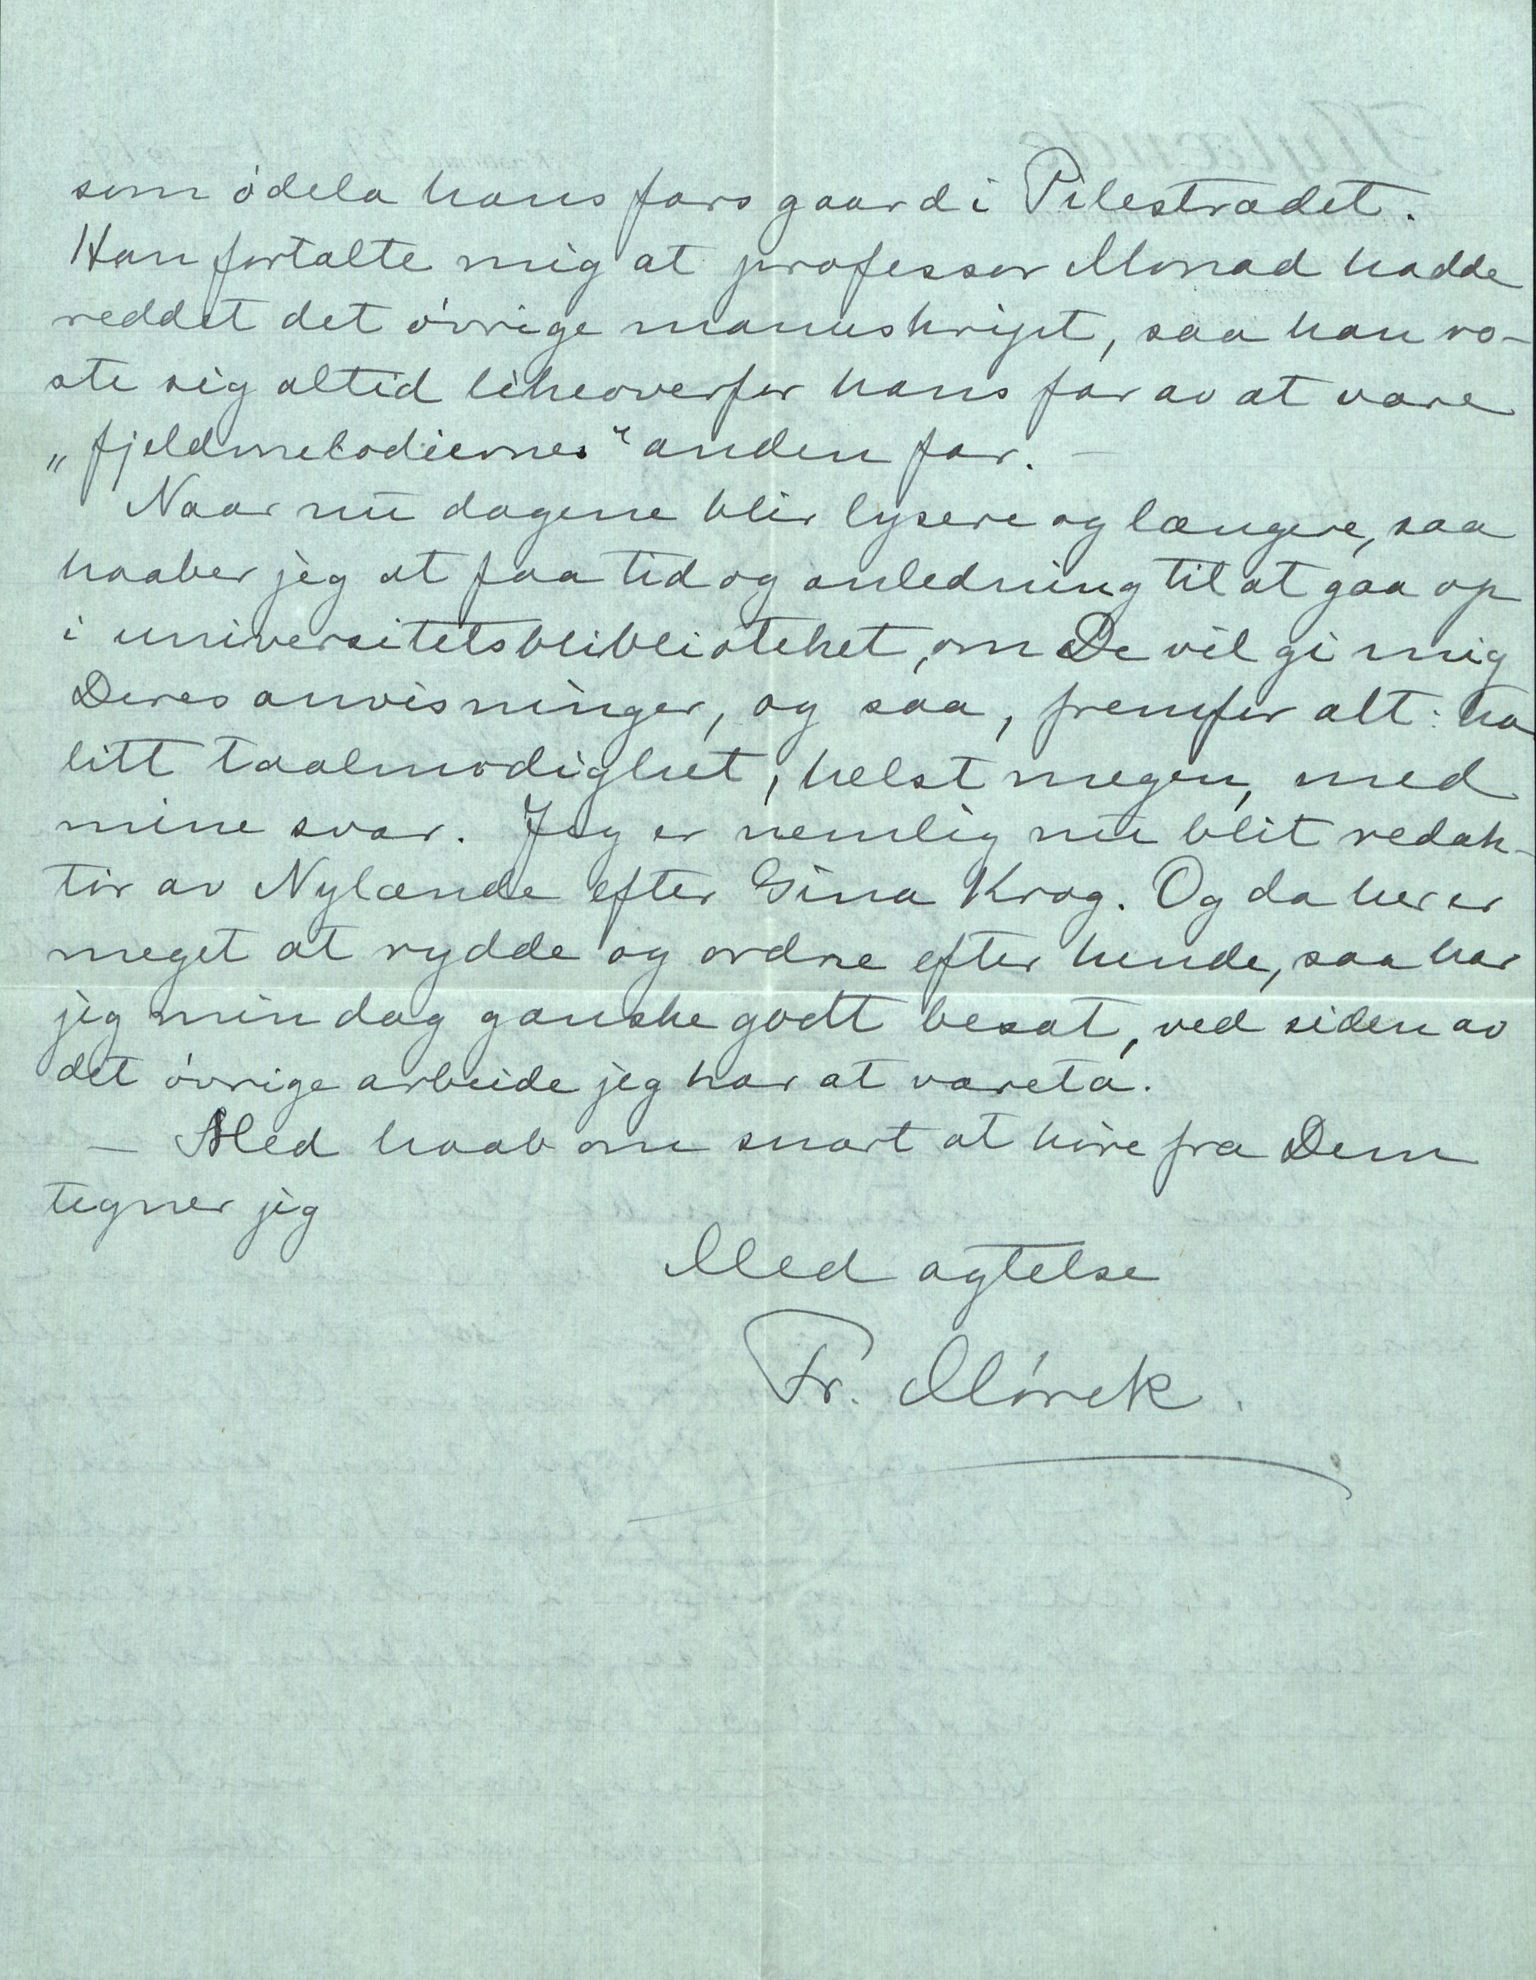 som ödela hans fars gaard i Pilestrædet.
Han fortalte mig at professor Monrad hadde
reddet det övrige manuskript, saa han ro-
ste sig altid likeoverfor hans far av at være
„fjeldmelodiernes“ anden far. —
Naar nu dagene blir lysere og længere, saa
haaber jeg at faa tid og anledning til at gaa op
i universitetsblibliotekket, om De vil gi mig
Deres anvisninger, og saa, fremfor alt: ha
litt taalmodighet, helst megen, med
mine svar. Jeg er nemlig nu blit redak-
tör av Nylænde efter Gina Krog. Og da her er
meget at rydde og ordne efter hende, saa har
jeg min dag ganske godt besat, ved siden av
det övrige arbeide jeg har at vareta.
— Med haab om snart at höre fra Dem
tegner jeg
Med agtelse
Fr. Mörck.